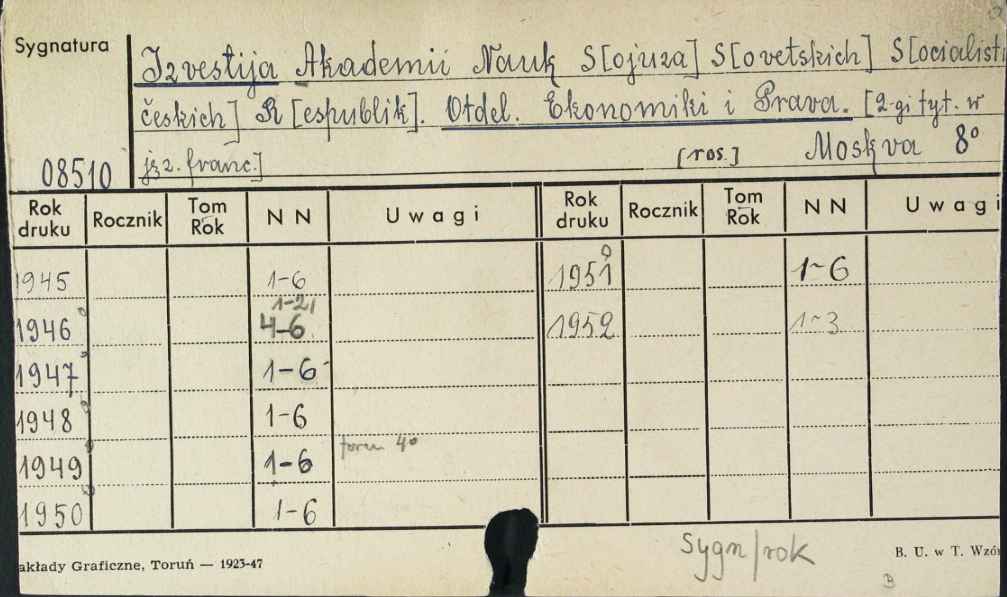 Sygnatura
Izvestija Akademii Nauk S[ojuza] S[ovetskich] S[ocialisti
českich] R[espublik]. Otdel. Ekonomiki i Prava. [2-gi tyt. w
jęz. franc.] [ros.] Moskva 8°
08510
Rok druku Rocznik Tom Rok N N Uwagi Rok druku Rocznik Tom Rok N N Uwagi
1945 1-6 1951 1-6
1-2,
1946 4-6 1952 1-3
1947 1-6
1948 1-6
1949 1-6 4°
1950 1-6
Sygn/rok
akłady Graficzne, Toruń — 1923-47 B. U. w T. Wzó
B